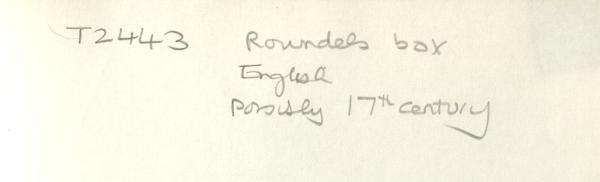 T2443 Roundels box
English
Possibly 17th century